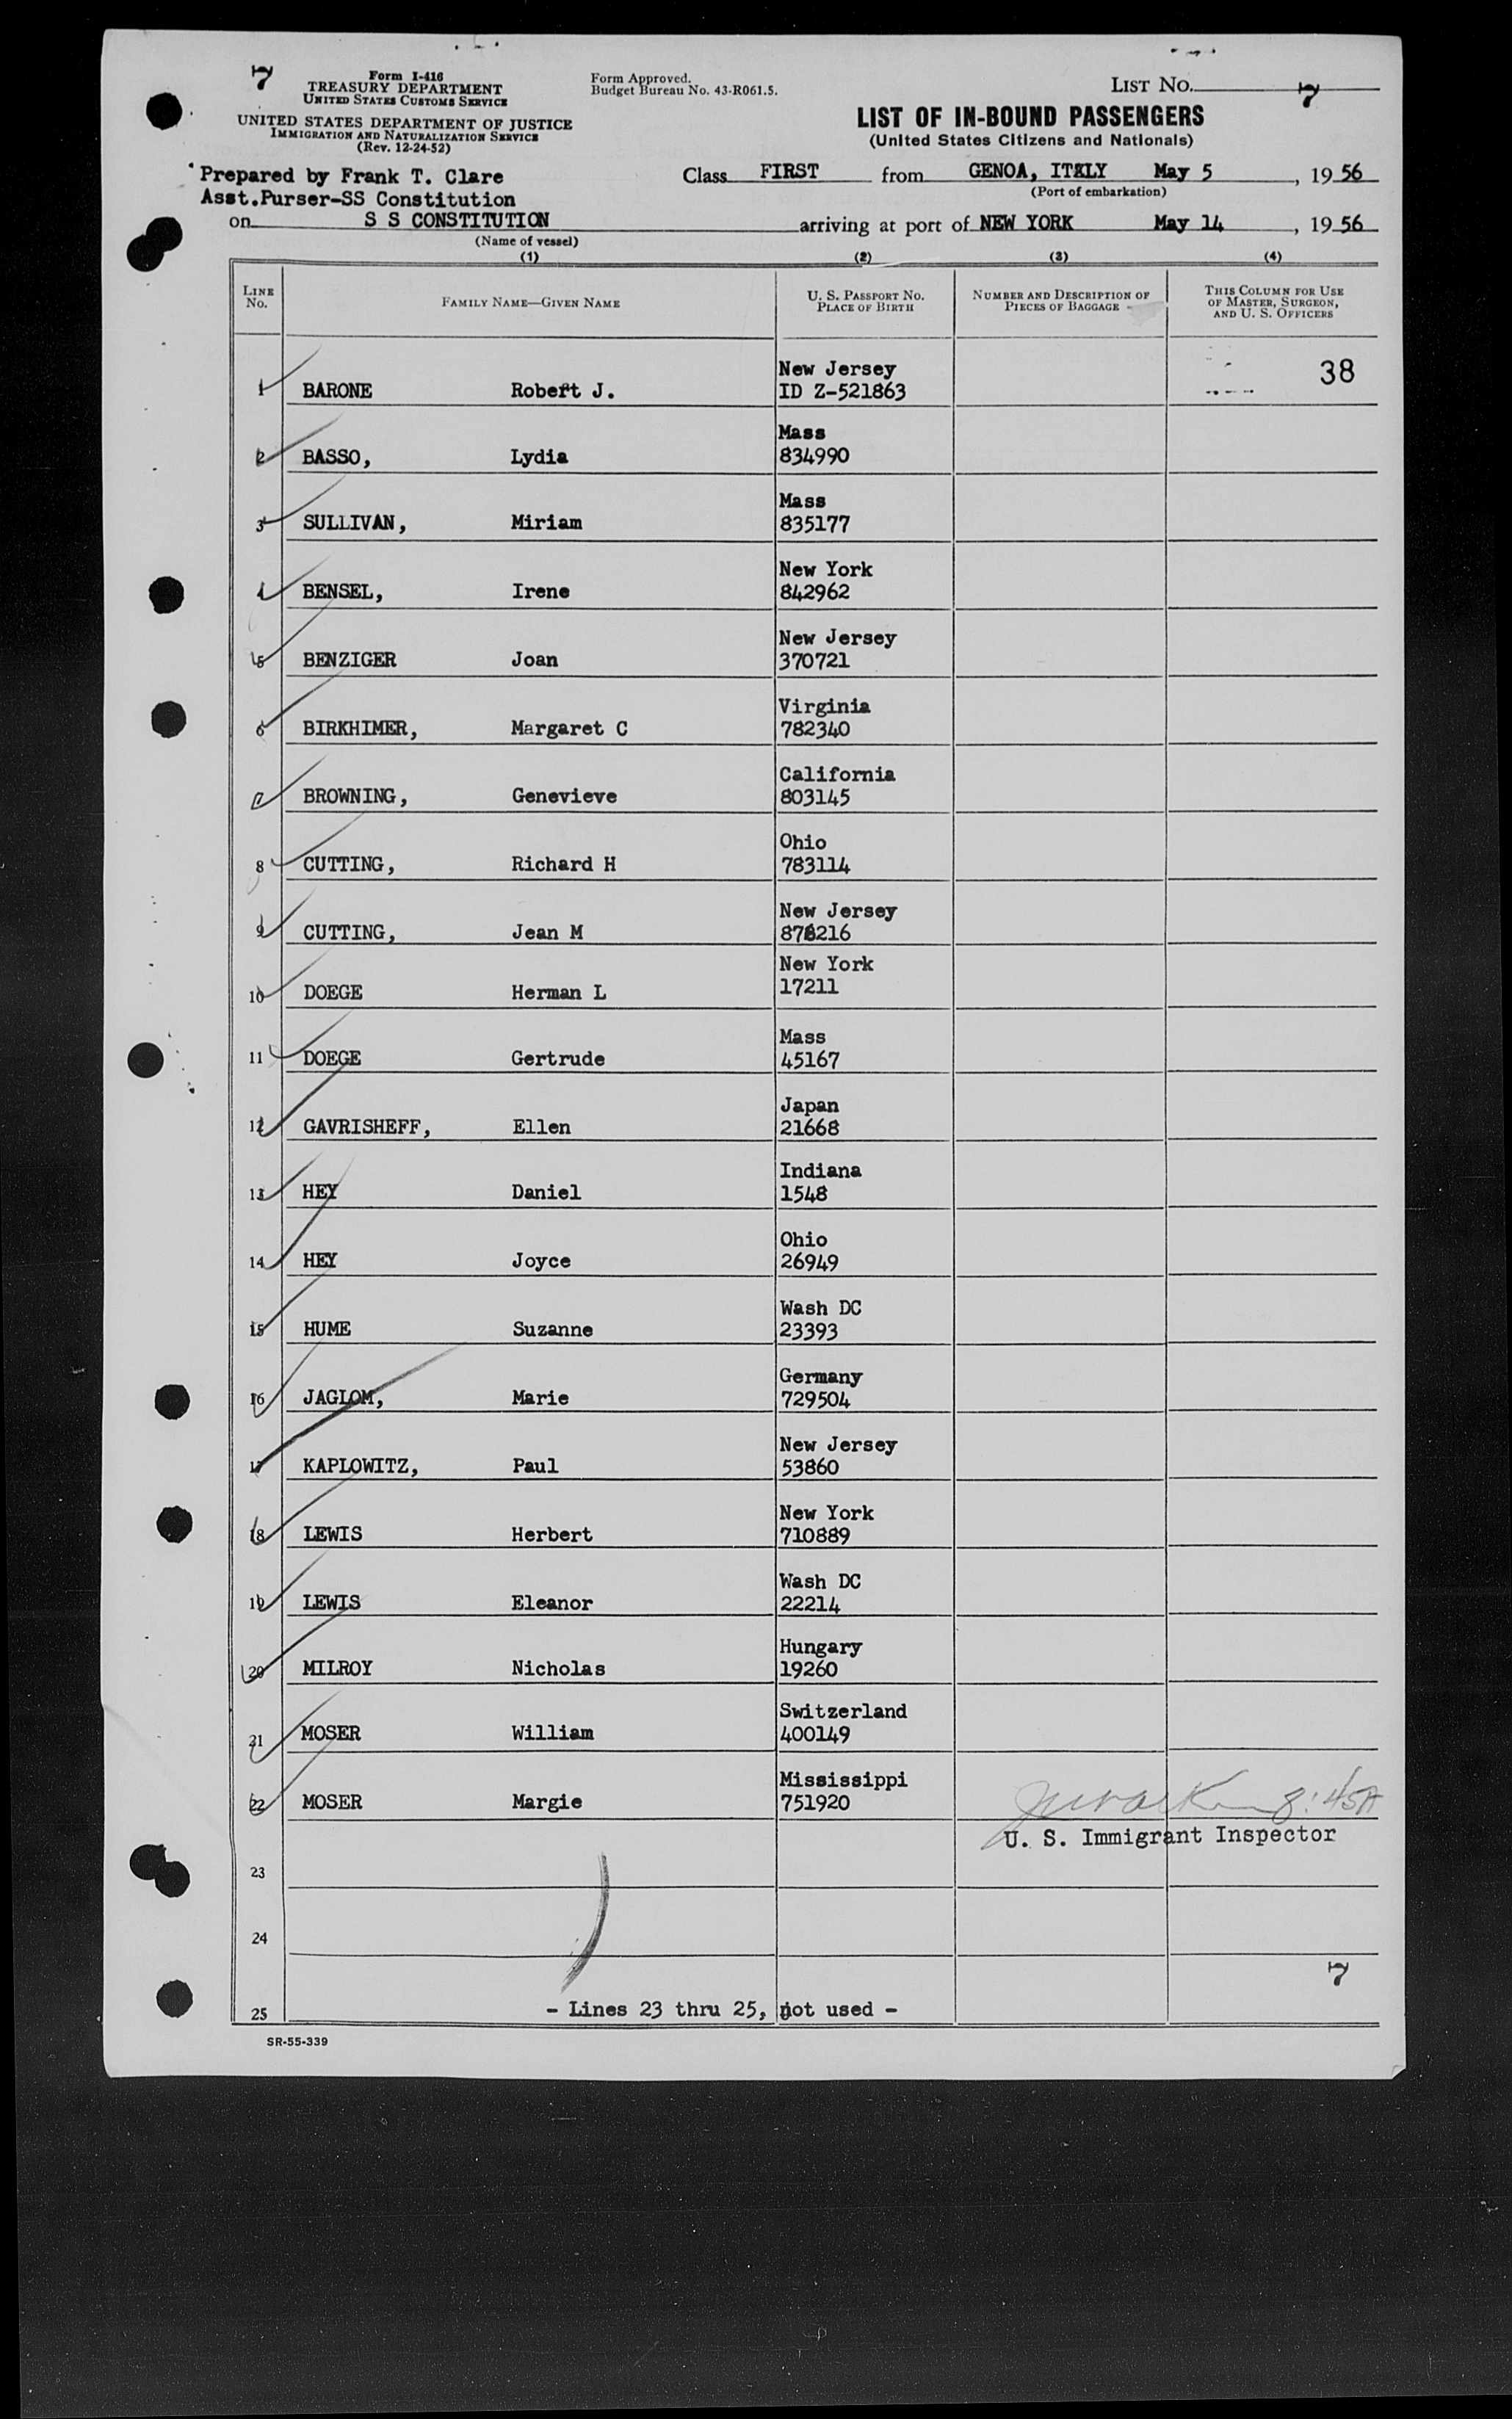 7
Form I-416
TREASURY DEPARTMENT
UNITED STATES CUSTOMS SERVICE
UNITED STATES DEPARTMENT OF JUSTICE
IMMIGRATION AND NATURALIZATION SERVICE
(Rev. 12-24-52)
Form Approved.
Budget Bureau No. 43-R061.5.
LIST NO. 7
LIST OF IN-BOUND PASSENGERS
(United States Citizens and Nationals)
Prepared by Frank T. Clare
Asst.Purser-SS Constitution
Class FIRST from GENOA, ITALY May 5, 1956
(Port of embarkation)
on S S CONSTITUTION arriving at port of NEW YORK May 14, 1956
(Name of vessel)
(1) (2) (3) (4)
LINE NO.
FAMILY NAME—GIVEN NAME
U. S. PASSPORT NO.
PLACE OF BIRTH
NUMBER AND DESCRIPTION OF
PIECES OF BAGGAGE
THIS COLUMN FOR USE
OF MASTER, SURGEON,
AND U. S. OFFICERS
New Jersey 38
1 BARONE Robert J. ID Z-521863
Mass
2 BASSO, Lydia 834990
Mass
3 SULLIVAN, Miriam 835177
New York
4 BENSEL, Irene 842962
New Jersey
5 BENZIGER Joan 370721
Virginia
6 BIRKHIMER, Margaret C 782340
California
7 BROWNING, Genevieve 803145
Ohio
8 CUTTING, Richard H 783114
New Jersey
9 CUTTING, Jean M
New York
10 DOEGE Herman L 17211
Mass
11 DOEGE Gertrude 45167
Japan
12 GAVRISHEFF, Ellen 21668
Indiana
13 HEY Daniel 1548
Ohio
14 HEY Joyce 26949
Wash DC
15 HUME Suzanne 23393
Germany
16 JAGLOM, Marie 729504
New Jersey
17 KAPLOWITZ, Paul 53860
New York
18 LEWIS Herbert 710889
Wash DC
19 LEWIS Eleanor 22214
Hungary
20 MILROY Nicholas 19260
Switzerland
21 MOSER William 400149
Mississippi
22 MOSER Margie 751920 8:45A
U. S. Immigrant Inspector
23
24
7
25 - Lines 23 thru 25, not used -
SR-55-339